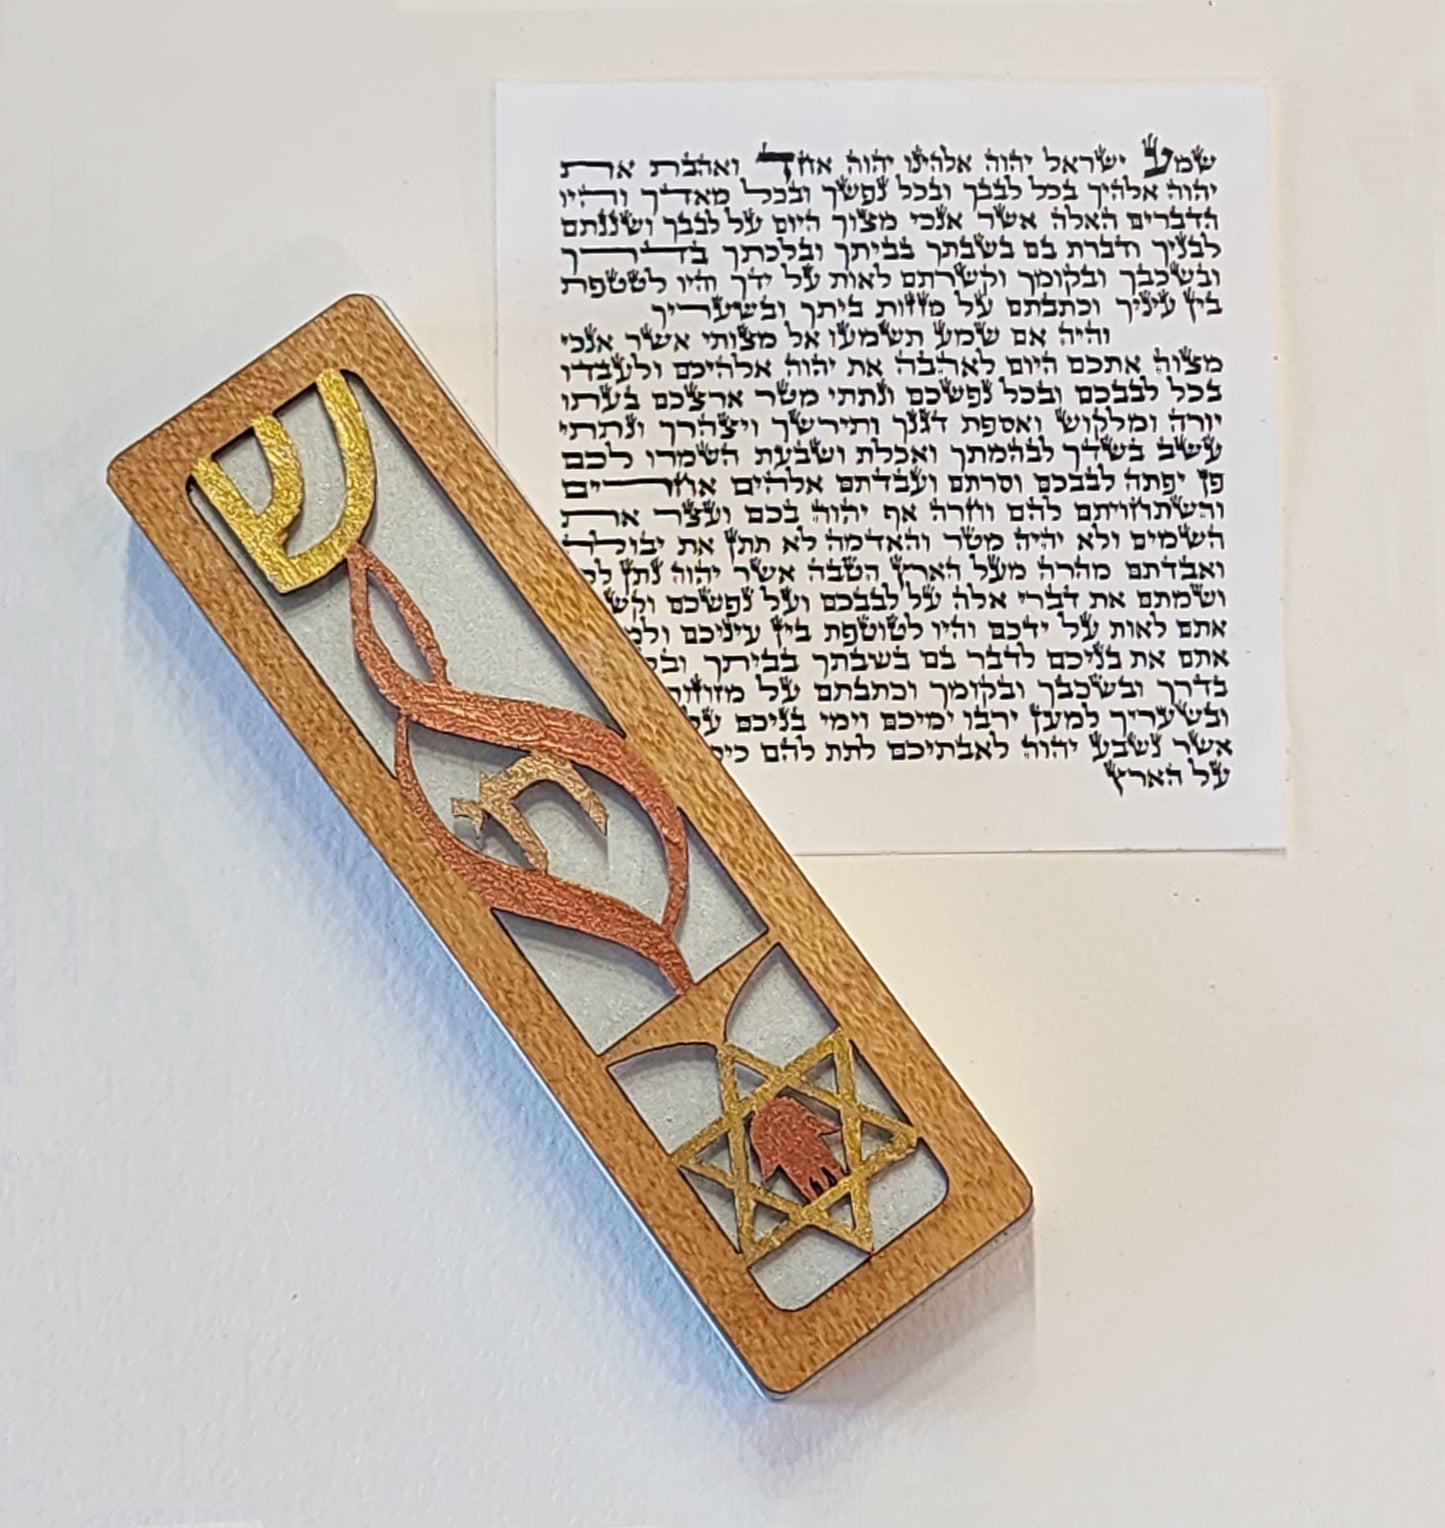 שמע ישראל יהוה אלהינו יהוה אחד ואהבת את
יהוה אלהיך בכל לבבך ובכל נפשך ובכל מאדך והיו
הדברים האלה אשר אנכי מצוך היום על לבבך ושננתם
לבניך ודברת בם בשבתך בביתך ובלכתך בדרך
ובשכבך ובקומך וקשרתם לאות על ידך והיו לטטפת
בין עיניך וכתבתם על מזזות ביתך ובשעריך
והיה אם שמע תשמעו אל מצותי אשר אנכי
מצוה אתכם היום לאהבה את יהוה אלהיכם ולעבדו
בכל לבבכם ובכל נפשכם ונתתי מטר ארצכם בעתו
יורה ומלקוש ואספת דגנך ותירשך ויצהרך ונתתי
עשב בשדך לבהמתך ואכלת ושבעת השמרו לכם
פן יפתה לבבכם וסרתם ועבדתם אלהים אחרים
והשתחויתם להם וחרה אף יהוה בכם ועצר את
השמים ולא יהיה מטר והאדמה לא תתן את יבולה
ואבדתם מהרה מעל הארץ הטבה אשר יהוה נתן
ושמתם את דברי אלה על לבבכם ועל נפשכם
אתם לאות על ידכם והיו לטוטפת בין עיניכם
אתם את בניכם לדבר בם בשבתך בביתך
בדרך ובשכבך ובקומך וכתבתם על
ובשעריך למען ירבו ימיכם וימי בניכם על
אשר נשבע יהוה לאבתיכם לתת להם
על הארץ
ש
חי